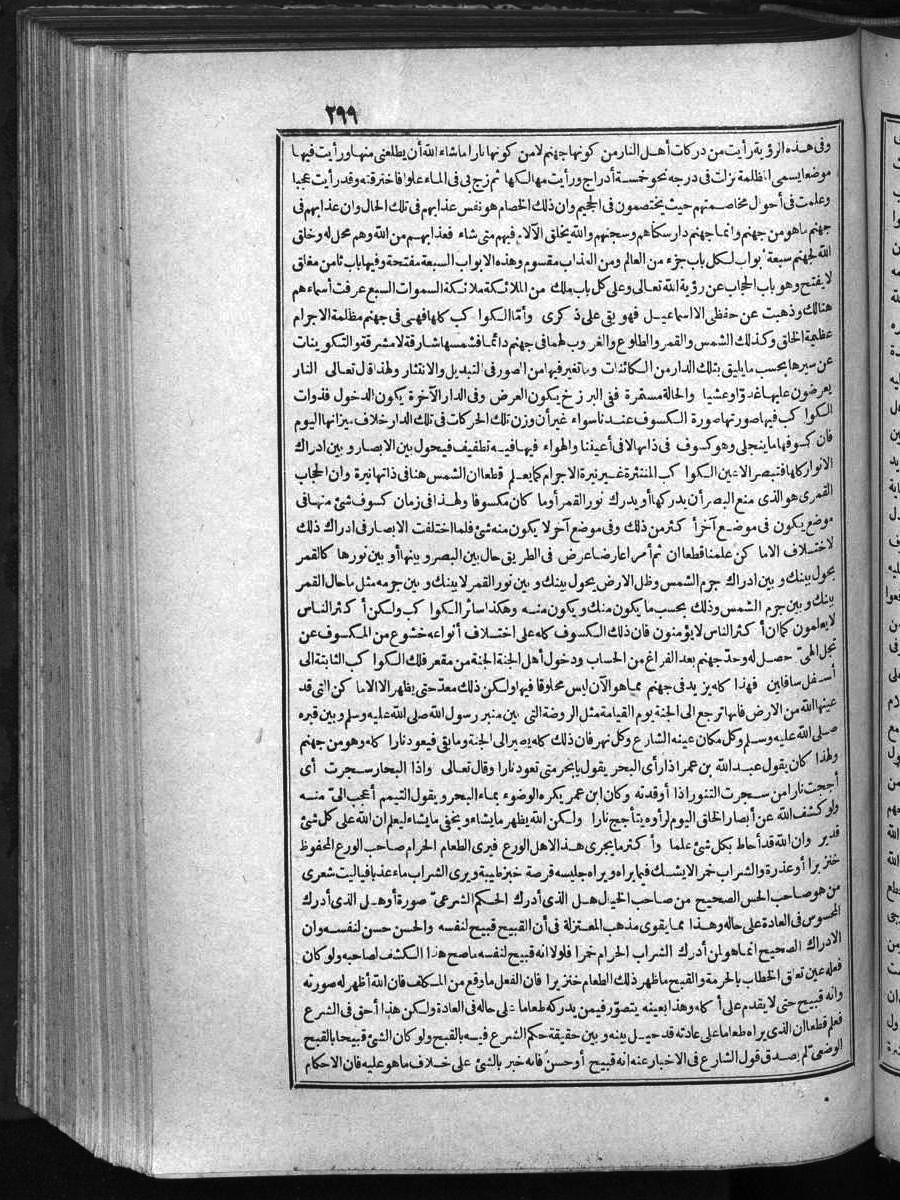 ٢٩٩
وفى هذه الرؤية رأيت من دركات أهل النار من كونها جهنم لا من كونها نارا ما شاء الله أن يطلعنى منها ورأيت فيها
موضعا يسمى المظلمة نزلت فى درجه نحو خمسة أدراج ورأيت مهالكها ثم زج بى فى الماء علوا فاخترقته وقد رأيت عجبا
وعلمت فى أحوال مخاصمتهم حيث يختصمون فى الجحيم وان ذلك الخصام هو نفس عذابهم فى تلك الحال وان عذابهم فى
جهنم ماهو من جهنم وانما جهنم دار سكناهم وسجنهم والله يخلق الآلام فيهم متى شاء فعذابهم من الله وهم محل له وخلق
الله لجهنم سبعة أبواب لكل باب جزء من العالم ومن العذاب مقسوم وهذه الابواب السبعة مفتحة وفيها باب ثامن مغلق
لا يفتح وهو باب الحجاب عن رؤية الله تعالى وعلى كل باب ملك من الملائكة ملائكة السموات السبع عرفت أسماءهم
هنالك وذهبت عن حفظى الا اسماعيل فهو بقى على ذكرى وأمّا الكواكب كلها فهى فى جهنم مظلمة الاجرام
عظيمة الخلق وكذلك الشمس والقمر والطلوع والغروب لهما فى جهنم دائما فشمسها شارقة لا مشرقة والتكوينات
عن سيرها بحسب مايليق بتلك الدار من الكائنات وما تغير فيها من الصور فى التبديل والانتثار ولهذا قال تعالى النار
يعرضون عليها غدوّا وعشيا والحالة مستمرة ففى البرزخ يكون العرض وفى الدار الآخرة يكون الدخول فذوات
الكواكب فيها صورتها صورة الكسوف عندنا سواء غير أن وزن تلك الحركات فى تلك الدار خلاف ميزانها اليوم
فان كسوفها ما ينجلى وهو كسوف فى ذاتها لا فى أعيننا والهواء فيها فيه تطفيف فيحول بين الابصار وبين ادراك
الانوار كلها فتبصر الاعين الكواكب المنتثرة غير نيرة الاجرام كما يعلم قطعا ان الشمس هنا فى ذاتها نيرة وان الحجاب
القمرى هو الذى منع البصر أن يدركها أو يدرك نور القمر أو ما كان مكسوفا ولهذا فى زمان كسوف شئ منها فى
موضع يكون فى موضع آخر أكثر من ذلك وفى موضع آخر لا يكون منه شئ فلما اختلفت الابصار فى ادراك ذلك
لاختلاف الاماكن علمنا قطعا ان ثم أمرا عارضا عرض فى الطريق حال بين البصر وبينها أو بين نورها كالقمر
يحول بينك وبين ادراك جرم الشمس وظل الارض يحول بينك وبين نور القمر لا بينك وبين جرمه مثل ما حال القمر
بينك وبين جرم الشمس وذلك بحسب ما يكون منك ويكون منه وهكذا سائر الكواكب ولكن أكثر الناس
لا يعلمون كما ان أكثر الناس لا يؤمنون فان ذلك الكسوف كله على اختلاف أنواعه خشوع من المكسوف عن
تجل الهىّ حصل له وحدّ جهنم بعد الفراغ من الحساب ودخول أهل الجنة الجنة من مقعر فلك الكواكب الثابتة الى
أسفل سافلين فهذا كله يزيد فى جهنم مما هو الآن ليس مخلوقا فيها ولكن ذلك معدّ حتى يظهر الا الاماكن التى قد
عينها الله من الارض فانها ترجع الى الجنة يوم القيامة مثل الروضة التى بين منبر رسول الله صلى الله عليه وسلم وبين قبره
صلى الله عليه وسلم وكل مكان عينه الشارع وكل نهر فان ذلك كله يصير الى الجنة وما بقى فيعود نارا كله وهو من جهنم
ولهذا كان يقول عبد الله بن عمر اذا رأى البحر يقول يا بحر متى تعود نارا وقال تعالى واذا البحار سجرت أى
أججت نارا من سجرت التنور اذا أوقدته وكان ابن عمر يكره الوضوء بماء البحر ويقول التيمم أعجب الىّ منه
ولو كشف الله عن أبصار الخلق اليوم لرأوه يتأجج نارا ولكن الله يظهر ما يشاء ويخفى ما يشاء ليعلم ان الله على كل شئ
قدير وان الله قد أحاط بكل شئ علما وأكثر ما يجرى هذا لاهل الورع فيرى الطعام الحرام صاحب الورع المحفوظ
خنزيرا أو عذرة والشراب خمرا لا يشك فيما يراه ويراه جليسه قرصة خبز طيبة ويرى الشراب ماء عذبا فياليت شعرى
من هو صاحب الحس الصحيح من صاحب الخيال هل الذى أدرك الحكم الشرعىّ صورة أو هل الذى أدرك
المحسوس فى العادة على حاله وهذا مما يقوى مذهب المعتزلة فى أن القبيح قبيح لنفسه والحسن حسن لنفسه وان
الادراك الصحيح انما هو لمن أدرك الشراب الحرام خمرا فلولا انه قبيح لنفسه ما صح هذا الكشف لصاحبه ولو كان
فعله عين تعلق الخطاب بالحرمة والقبح ما ظهر ذلك الطعام خنزيرا فان الفعل ما وقع من المكلف فان الله أظهر له صورته
وانه قبيح حتى لا يقدم على أكله وهذا بعينه يتصوّر فيمن يدركه طعاما على حاله فى العادة ولكن هذا أحق فى الشرع
فعلم قطعا ان الذى يراه طعاما على عادته قد حيل بينه وبين حقيقة حكم الشرع فيه بالقبح ولو كان الشئ قبيحا بالقبح
الوضعىّ لم يصدق قول الشارع فى الاخبار عنه انه قبيح أو حسن فانه خبر بالشئ على خلاف ما هو عليه فان الاحكام